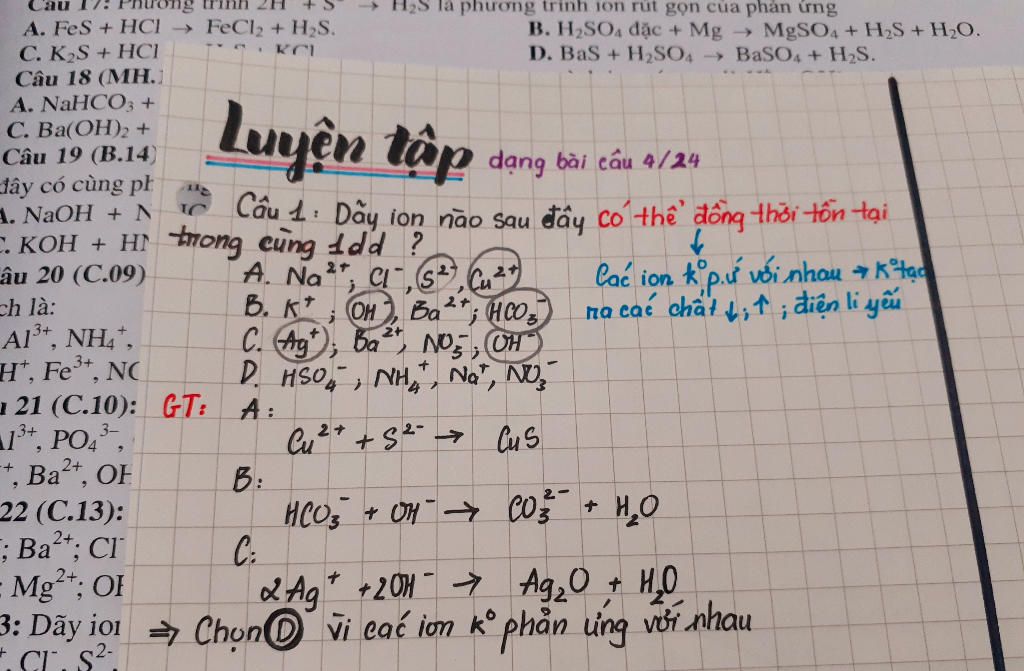 Câu 17: Phương trình 2H + S → H₂S là phương trình ion rút gọn của phản ứng
A. FeS + HCl → FeCl₂ + H₂S.
B. H₂SO₄ đặc + Mg → MgSO₄ + H₂S + H₂O.
C. K₂S + HCl KCl
D. BaS + H₂SO₄ → BaSO₄ + H₂S.
Câu 18 (MH.
A. NaHCO₃ +
C. Ba(OH)₂ +
Câu 19 (B.14)
đây có cùng ph
A. NaOH + N
C. KOH + HN
âu 20 (C.09)
ch là:
Al³⁺, NH₄⁺,
H⁺, Fe³⁺, NO
21 (C.10):
Al³⁺, PO₄³⁻,
⁺, Ba²⁺, OH
22 (C.13):
; Ba²⁺; Cl⁻
Mg²⁺; OH
3: Dãy ion
⁺, Cl⁻, S²⁻
Luyện tập dạng bài câu 4/24
Câu 1: Dãy ion nào sau đây có thể đồng thời tồn tại
trong cùng 1dd ?
A. Na²⁺; Cl⁻, S²⁻, Cu²⁺
B. K⁺; OH⁻, Ba²⁺; HCO₃⁻
C. Ag⁺; Ba²⁺, NO₃⁻; OH⁻
D. HSO₄⁻; NH₄⁺, Na⁺, NO₃⁻
↓
Các ion k° p.ứ với nhau → k° tạo
ra các chất ↓; ↑; điện li yếu
GT: A:
Cu²⁺ + S²⁻ → CuS
B:
HCO₃⁻ + OH⁻ → CO₃²⁻ + H₂O
C:
2Ag⁺ + 2OH⁻ → Ag₂O + H₂O
⇒ Chọn D vì các ion k° phản ứng với nhau